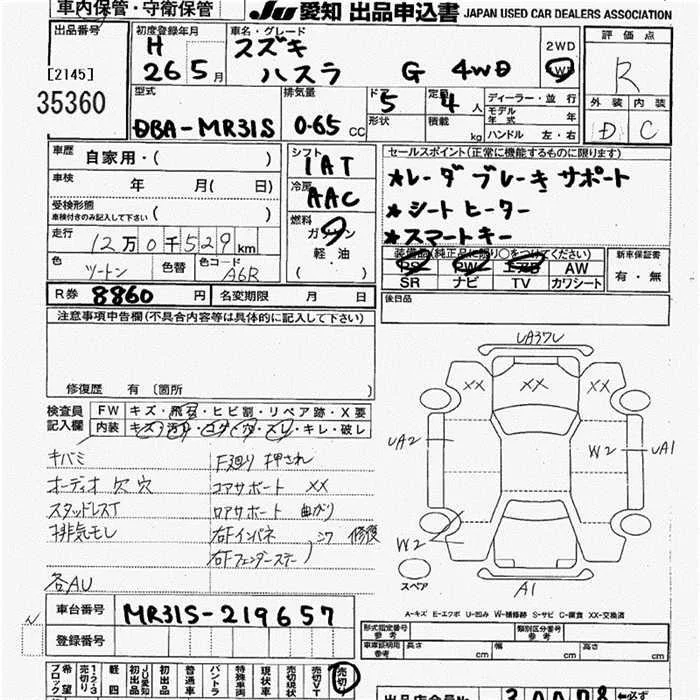 車内保管・守衛保管
JU愛知 出品申込書 JAPAN USED CAR DEALERS ASSOCIATION
出品番号
[2145]
35360
初度登録年月
H
26 5月
車名・グレード
スズキ
ハスラ G 4WD
2WD
4WD
評価点
R
外装 内装
D C
型式
DBA-MR31S
排気量
0.65 CC
ドア
5
形状
定員
4 人
積載 kg
ディーラー・並行
モデル年式 年
ハンドル 左・右
車歴 自家用・( )
車検 年 月( 日)
受検形態
車検付きのみ記入して下さい ( )
走行 12万0千529km
色 ツートン 色替 色コード A6R
シフト
IAT
冷房
AAC
燃料
ガソリン
軽・油
( )
セールスポイント(正常に機能するものに限ります)
★レーダブレーキサポート
★シートヒーター
★スマートキー
装備品(純正品に限り○をつけてください)
PS PW エアB AW
SR ナビ TV カワシート
新車保証書
有・無
R券 8860円 名変期限 月 日
後日品
注意事項申告欄(不具合内容等は具体的に記入して下さい)
修復歴 有 〔箇所 〕
検査員記入欄
FW キズ・飛石・ヒビ割・リペア跡・X要
内装 キズ・汚れ・コゲ・穴・スレ・キレ・破レ
キバミ
オーディオ欠穴
スタッドレスT
排気モレ
各AU
F廻り押され
コアサポート XX
ロアサポート 曲がり
右Fインパネ
右Fフェンダーステー
シワ 修復
UA37U
XX XX XX
UA2
W2 UA1
W2
スペア
A1
A-キズ E-エクボ U-凹み W-補修跡 S-サビ C-腐食 XX-交換済
車台番号 MR31S-219657
登録番号
形式指定番号
参考
類別区分番号
参考
車庫証明用
参考
長さ cm 幅 cm 高さ cm
希望ブロック
1・2・3売切り
軽四
JU愛知初出品
初出品
普通車
バントラ
特殊車両
現状車
売切現状
売切VT
売切
出品店会員No. 30078 ←必ず